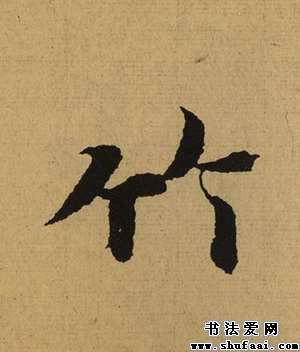 竹
书法爱网
www.shufaai.com